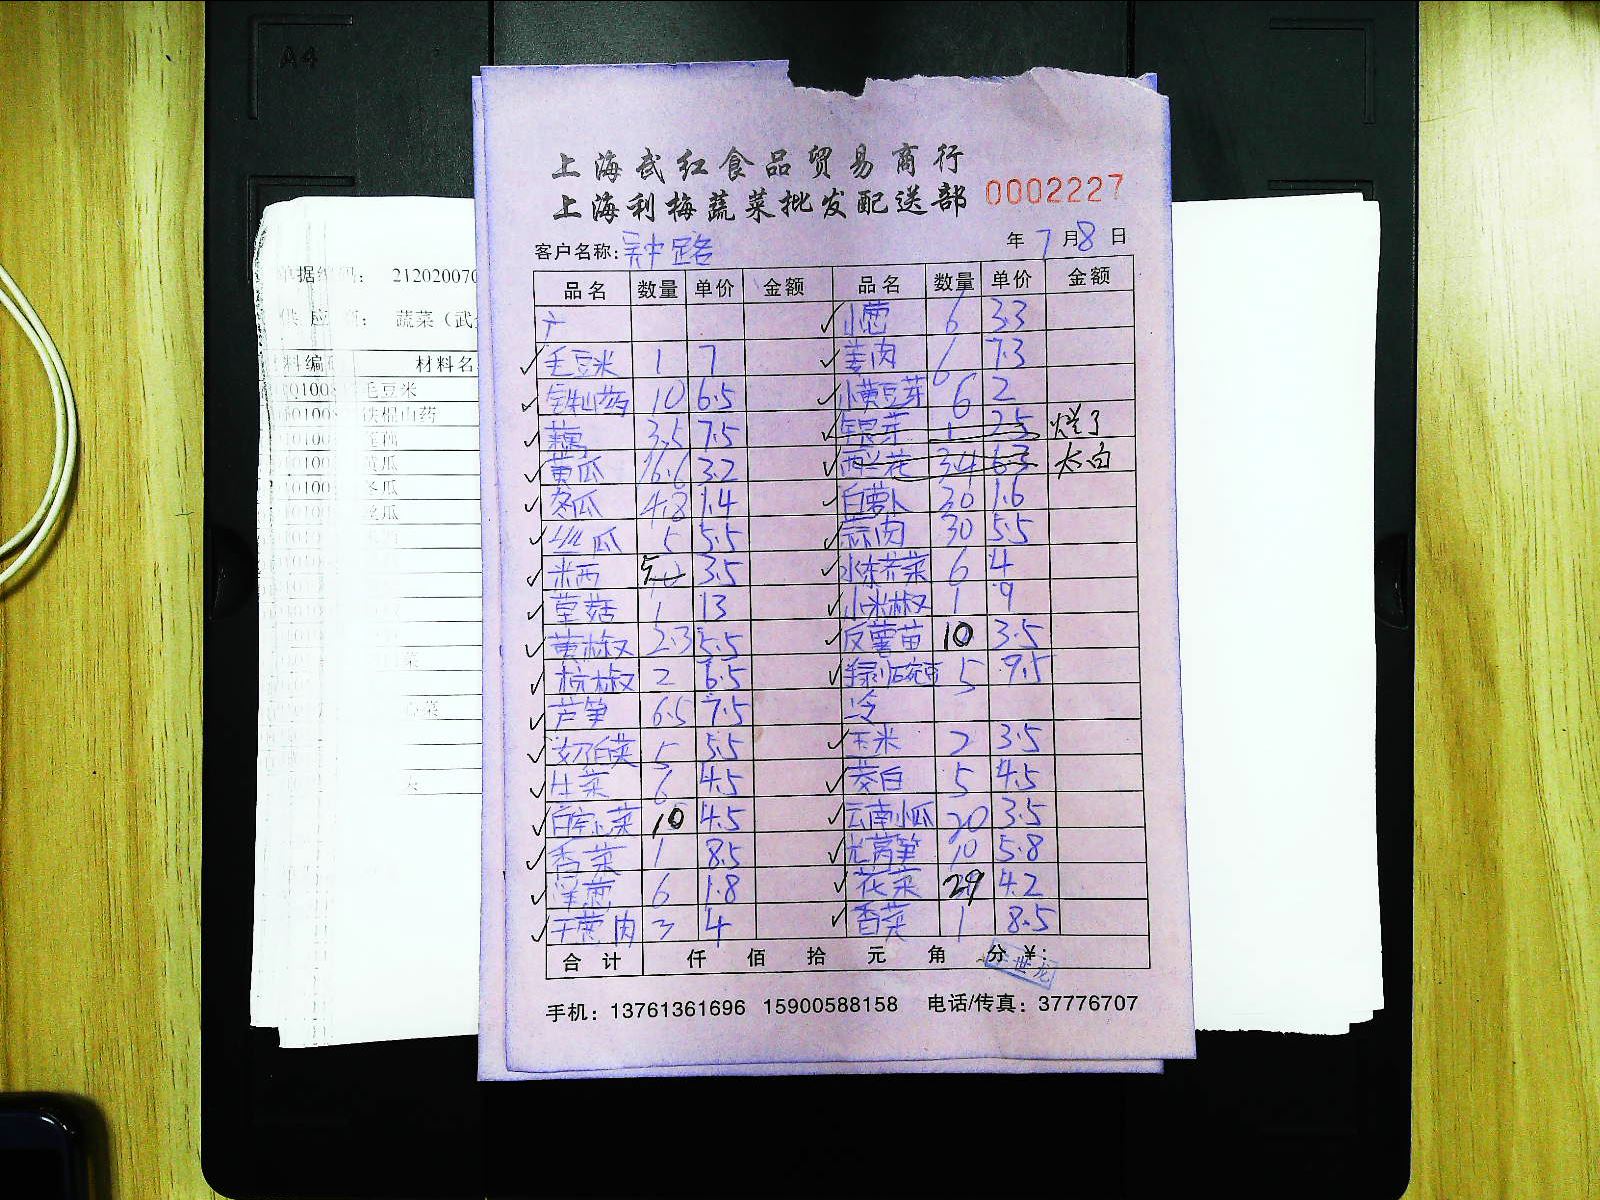 A4
上海武红食品贸易商行
上海利梅蔬菜批发配送部 0002227
客户名称: 吴中路 年 7 月 8 日
品名 数量 单价 金额 品名 数量 单价 金额
小葱 6 3.3
毛豆米 1 7 姜肉 6 7.3
铁山药 10 6.5 小黄豆芽 6 2
藕 3.5 7.5 银芽 1 2.5 烂了
黄瓜 16.6 3.2 西兰花 3.4 6.3 太白
冬瓜 4.8 1.4 白萝卜 30 1.6
丝瓜 5 5.5 蒜肉 30 5.5
米西 5 3.5 水东芥菜 6 4
草菇 1 13 小米椒 1 9
黄椒 2.3 5.5 反薯苗 10 3.5
杭椒 2 6.5 5 9.5
芦笋 6.5 7.5 冷
奶白菜 5 5.5 玉米 2 3.5
生菜 6 4.5 茭白 5 4.5
10 4.5 云南小瓜 20 3.5
香菜 1 8.5 光莴笋 10 5.8
洋葱 6 1.8 花菜 29 4.2
干葱肉 3 4 香菜 1 8.5
合计 仟 佰 拾 元 角 分 ¥:
手机: 13761361696 15900588158 电话/传真: 37776707
单据编码: 21202007
供应商: 蔬菜（武
料编 材料名
01008 毛豆米
01008 铁棍山药
01008
01008 黄瓜
01008 冬瓜
01008 丝瓜